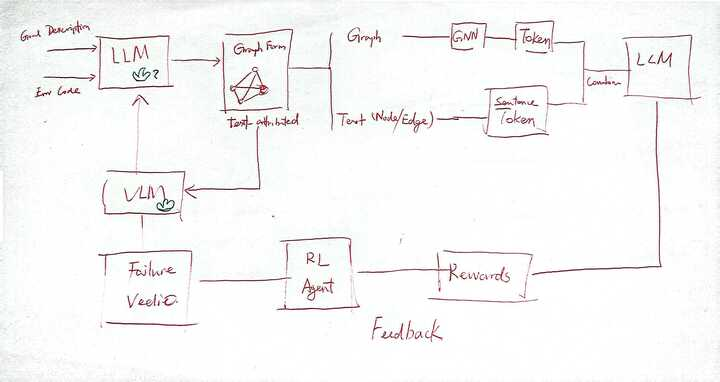 Goal Description
Env Code
LLM
?
Graph Form
text-attributed
Graph
GNN
Token
Text (Node/Edge)
Sentence
Token
Combine
LLM
VLM
Failure
Vedio
RL
Agent
Rewards
Feedback